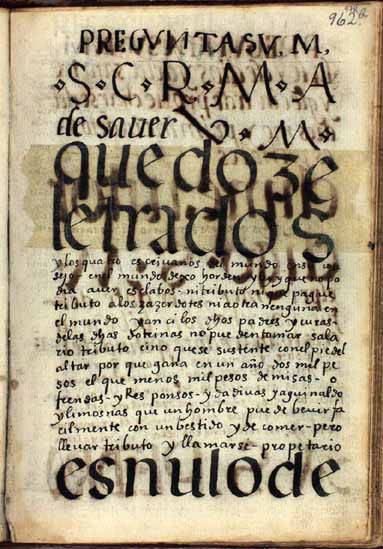 962
PREGVNTA SV. M,
·S·C·R·M·A
de sauer V·M·
que doze
letrados
y los quatro escriuanos del mundo en su con
sejo en el mundo dexo horden y ley que no po
dia auer esclabos ni tributo ni se pague
tributo a los sazerdotes ni a otra nenguna en
el mundo y anci los dhos padres y curas
de las dhas dotrinas no puedentomar sala
rio tributo cino que se sustente con el pie del
altar por que gana en un año dos mil pe
sos el que menos mil pesos de misas - o
frendas - y Responsos - y dadivas y aguinaldo
y limosnas que un hombre puede beuir fa
cilmente con un bestido y de comer - pero
lleuar tributo y llamarse - propetario
es nulo de